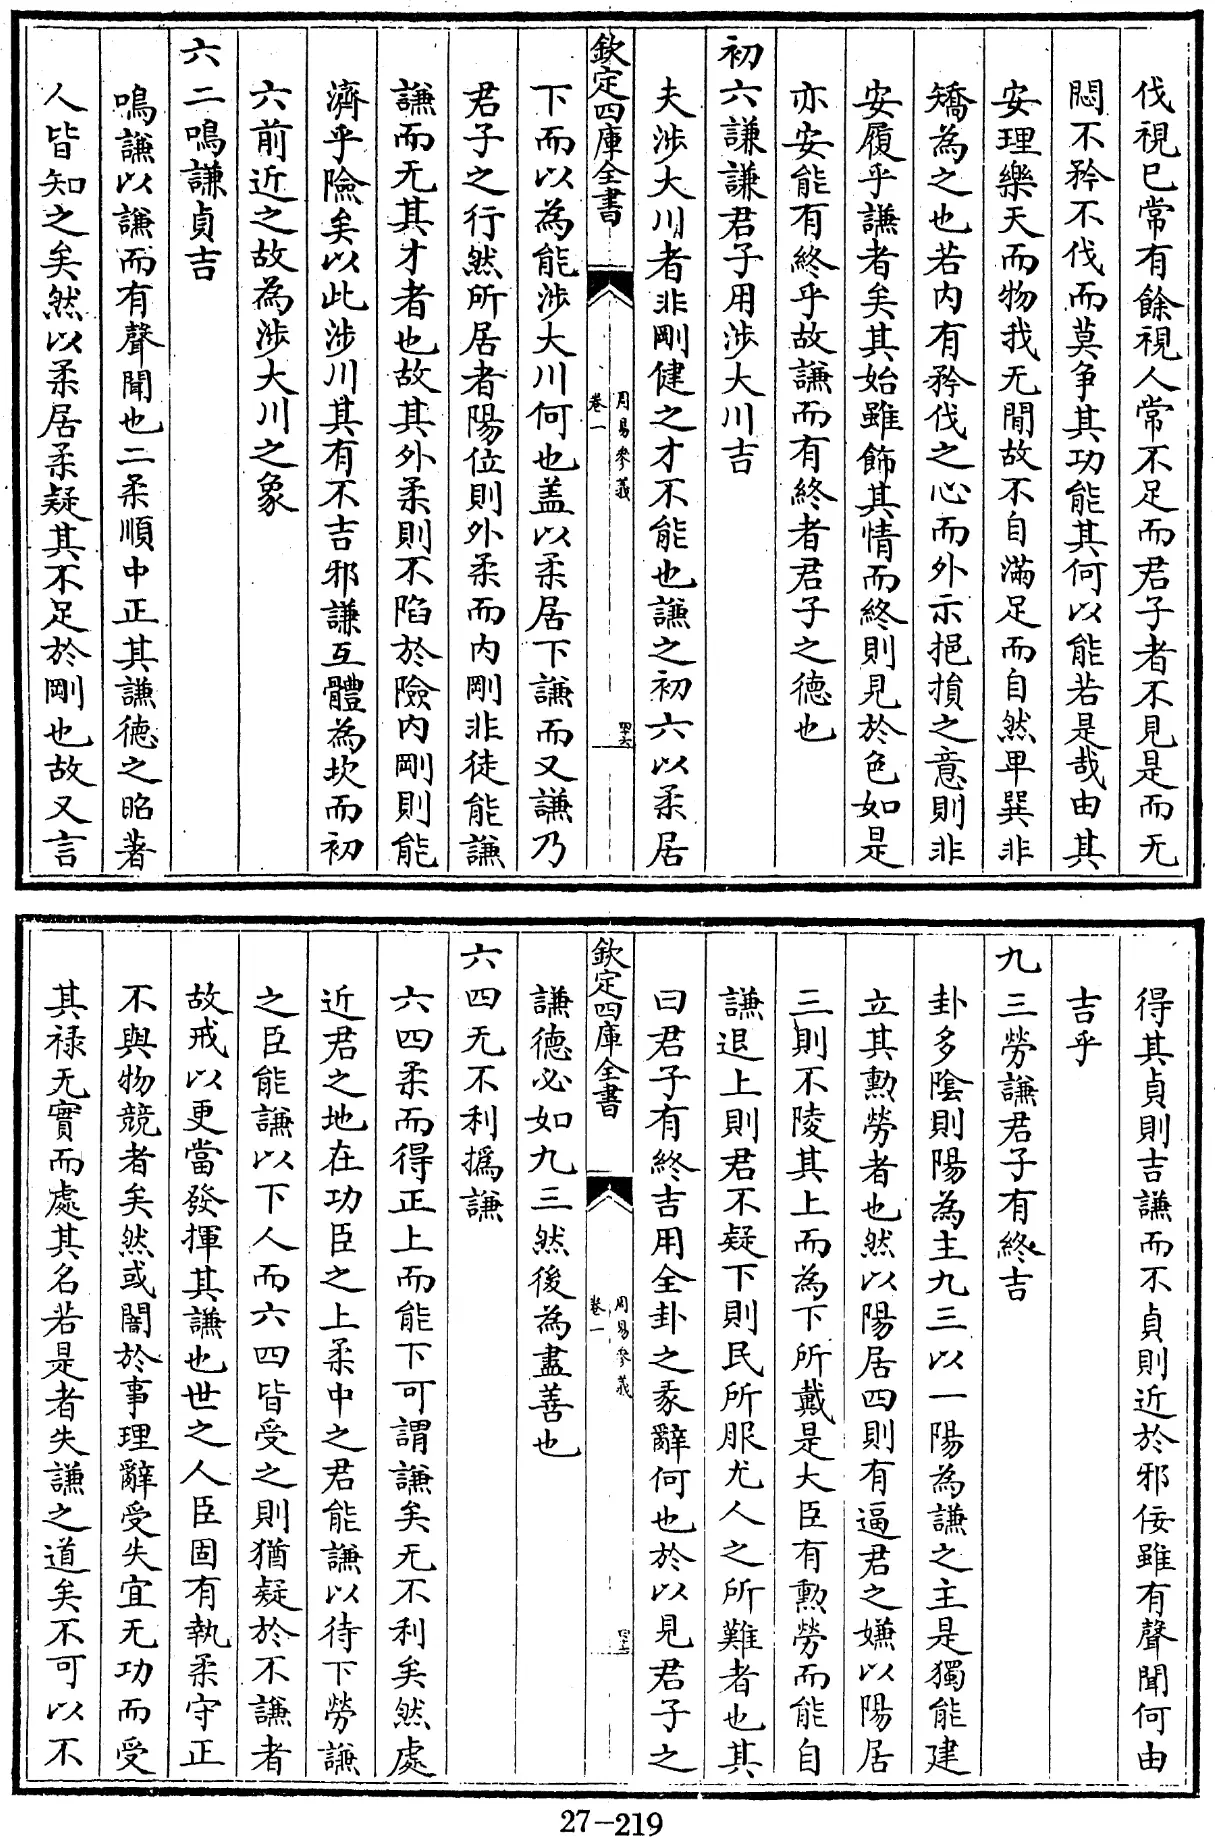 伐視已常有餘視人常不足而君子者不見是而无
悶不矜不伐而莫争其功能其何以能若是哉由其
安理樂天而物我无間故不自滿足而自然卑巽非
矯為之也若内有矜伐之心而外示挹損之意則非
安履乎謙者矣其始雖飾其情而終則見於色如是
亦安能有終乎故謙而有終者君子之德也
初六謙謙君子用涉大川吉
夫涉大川者非剛健之才不能也謙之初六以柔居
欽定四庫全書
周易參義
卷一
四十六
下而以為能涉大川何也盖以柔居下謙而又謙乃
君子之行然所居者陽位則外柔而内剛非徒能謙
謙而无其才者也故其外柔則不陷於險内剛則能
濟乎險矣以此涉川其有不吉邪謙互體為坎而初
六前近之故為涉大川之象
六二鳴謙貞吉
鳴謙以謙而有聲聞也二柔順中正其謙德之昭著
人皆知之矣然以柔居柔疑其不足於剛也故又言
得其貞則吉謙而不貞則近於邪佞雖有聲聞何由
吉乎
九三勞謙君子有終吉
卦多陰則陽為主九三以一陽為謙之主是獨能建
立其勲勞者也然以陽居四則有逼君之嫌以陽居
三則不陵其上而為下所戴是大臣有勲勞而能自
謙退上則君不疑下則民所服尤人之所難者也其
曰君子有終吉用全卦之彖辭何也於以見君子之
欽定四庫全書
周易參義
卷一
四十七
謙德必如九三然後為盡善也
六四无不利撝謙
六四柔而得正上而能下可謂謙矣无不利矣然處
近君之地在功臣之上柔中之君能謙以待下勞謙
之臣能謙以下人而六四皆受之則猶疑於不謙者
故戒以更當發揮其謙也世之人臣固有執柔守正
不與物競者矣然或闇於事理辭受失宜无功而受
其禄无實而處其名若是者失謙之道矣不可以不
27-219